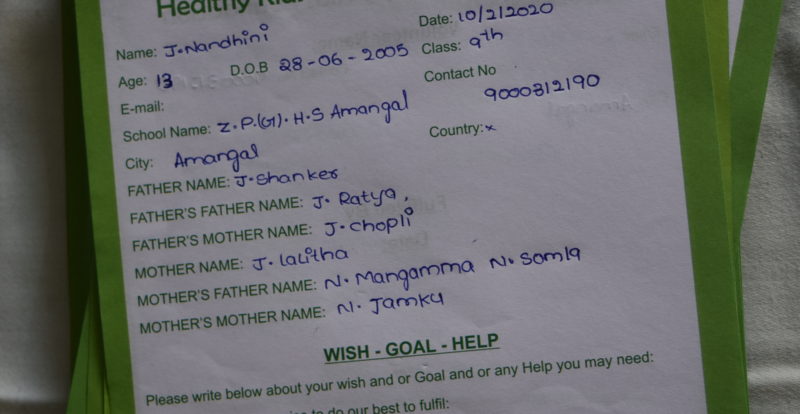 Healthy
Date: 10/2/2020
Name: J. Nandhini
Age: 13 D.O.B 28-06-2005 Class: 9th
E-mail: Contact No
9000312190
School Name: Z.P.(G).H.S Amangal
City: Amangal Country: x
FATHER NAME: J. Shanker
FATHER'S FATHER NAME: J. Ratya.
FATHER'S MOTHER NAME: J. chopli
MOTHER NAME: J. lalitha
MOTHER'S FATHER NAME: N. Mangamma N. Somla
MOTHER'S MOTHER NAME: N. Jamku
WISH - GOAL - HELP
Please write below about your wish and or Goal and or any Help you may need:
to do our best to fulfil: